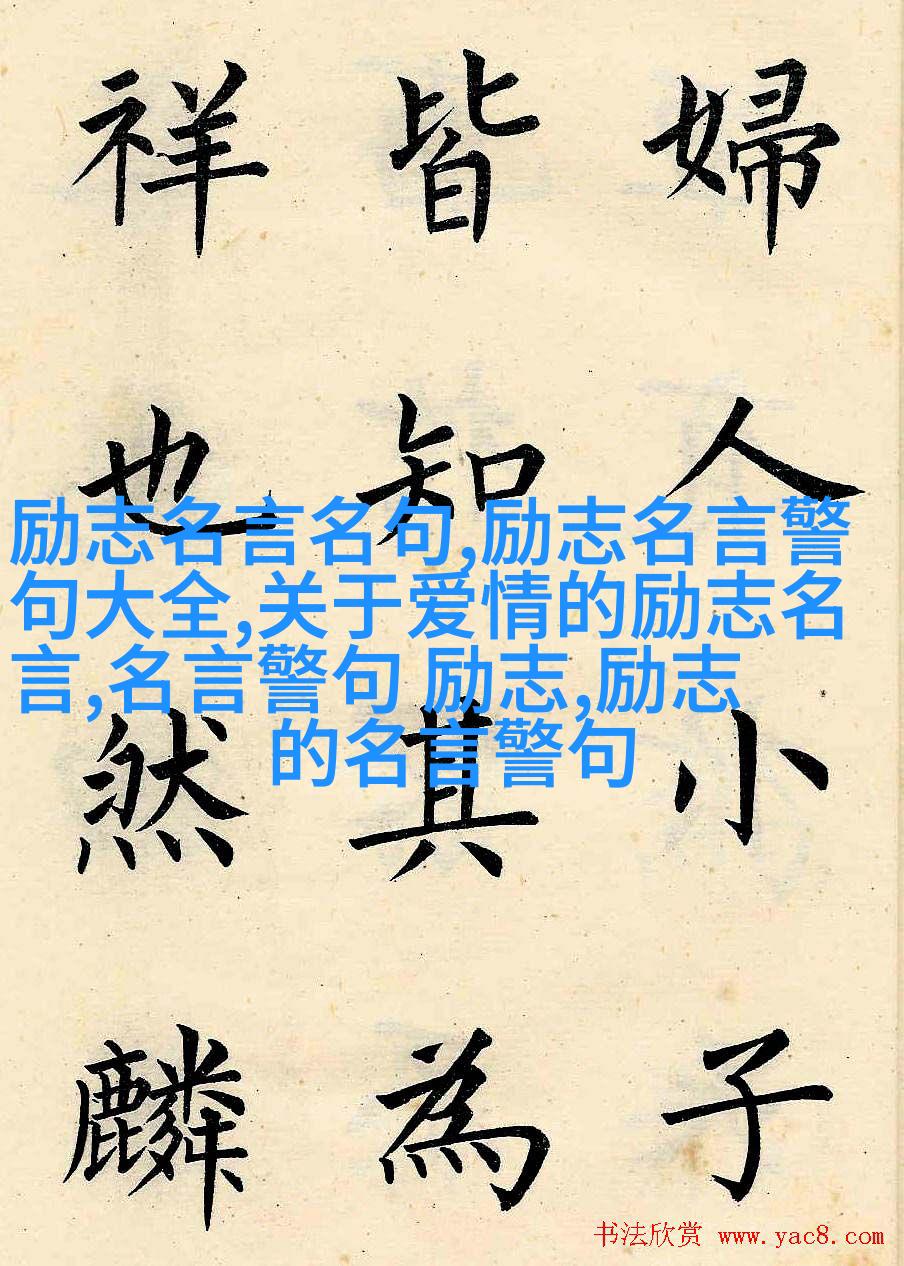 婦人小子
皆知其為
祥也然麟
励志名言名句,励志名言警
句大全,关于爱情的励志名
言,名言警句 励志,励志
的名言警句
书法欣赏 www.yac8.com